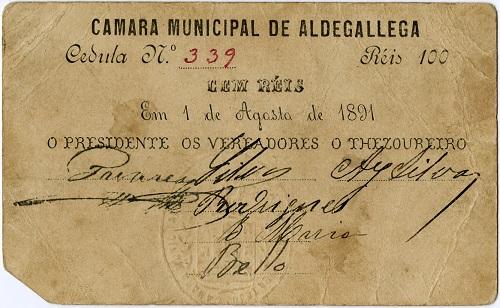 CAMARA MUNICIPAL DE ALDEGALLEGA
Cedula N.º 339 Réis 100
CEM RÉIS
Em 1 de Agosto de 1891
O PRESIDENTE OS VEREADORES O THEZOUREIRO
Silva Ay Silva
Rodrigues
Maria
Bello